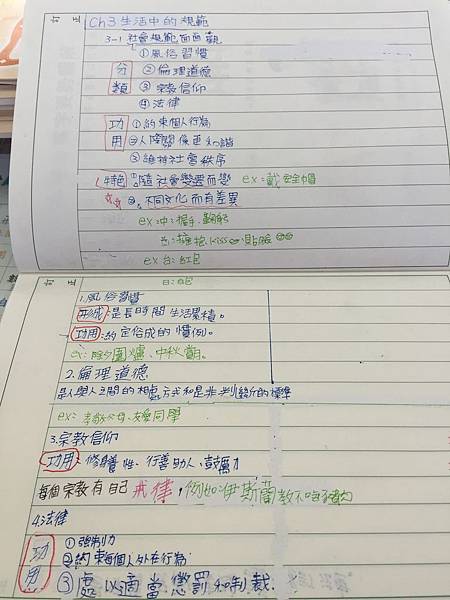 訂正
Ch3 生活中的規範
3-1 社會規範面面觀
分類
①風俗習慣
②倫理道德
③宗教信仰
④法律
功用
①約束個人行為
②人際關係更和諧
③維持社會秩序
特色 ①隨社會變遷而變 ex:戴安全帽
☆☆ ②不同文化而有差異
ex:中:握手、鞠躬
西:擁抱、kiss、貼臉
ex 台:紅包
訂正
日:白包
1.風俗習慣
形成:是長時間生活累積。
功用:約定俗成的慣例。
ex:除夕圍爐、中秋賞月。
2.倫理道德
是人與人之間的相處方式和是非判斷的標準
ex:孝敬父母、友愛同學
3.宗教信仰
功用:修養心性、行善助人、鼓勵
每個宗教有自己戒律,例如:伊斯蘭教不吃豬肉
4.法律
功用
①強制力
②約束每個人外在行為
③處以適當懲罰和制裁.